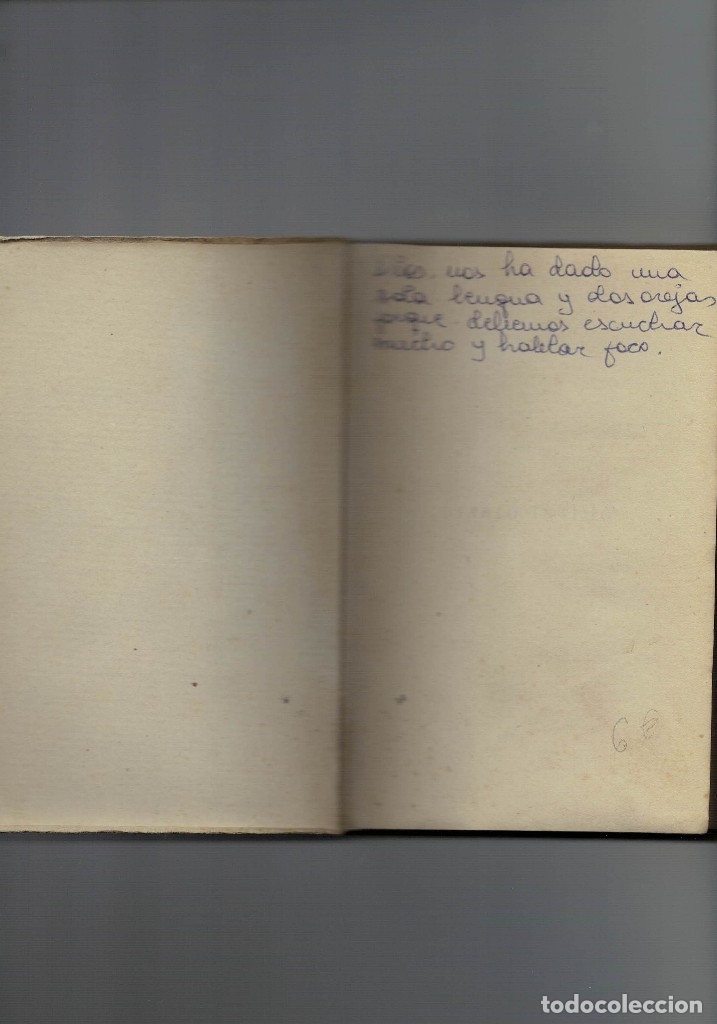 Dios nos ha dado una
sola lengua y dos orejas
porque debemos escuchar
mucho y hablar poco.
6 €
todocoleccion